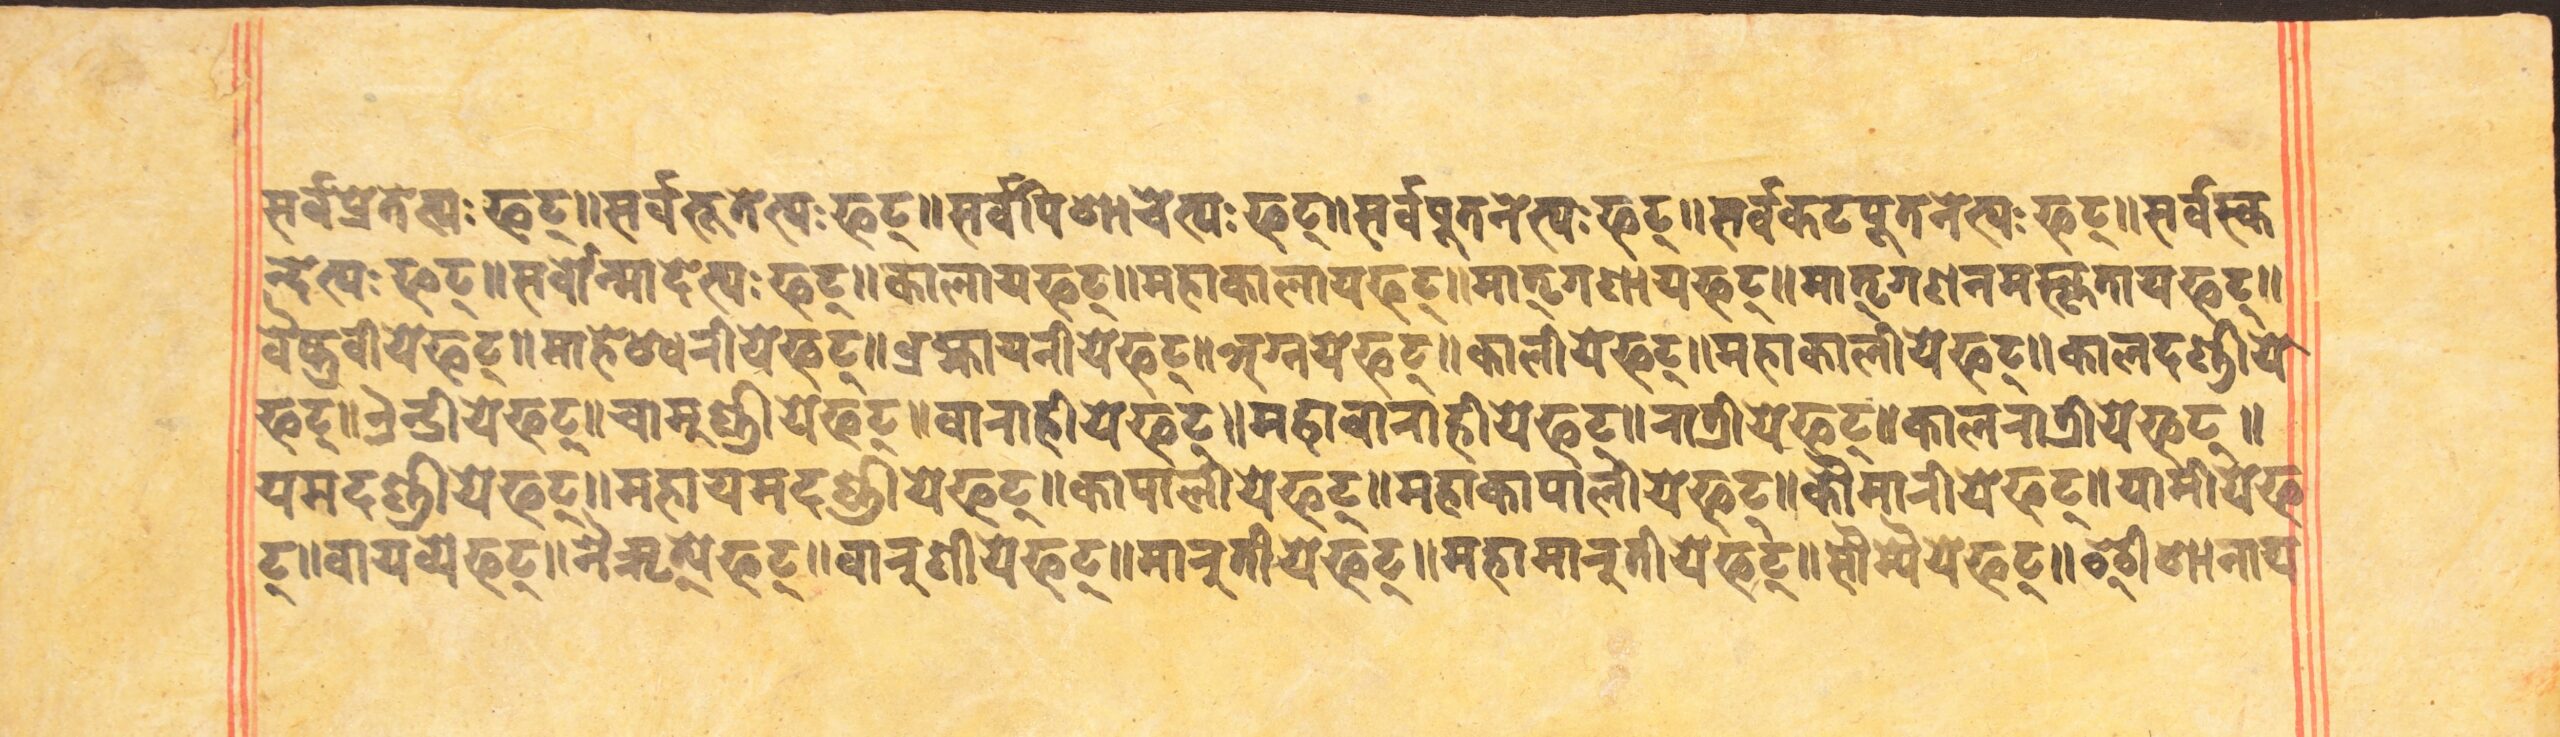 सर्वप्रेतेभ्यः फट्॥सर्वभूतेभ्यः फट्॥सर्वपिशाचेभ्यः फट्॥सर्वपूतनेभ्यः फट्॥सर्वकटपूतनेभ्यः फट्॥सर्वस्क
न्देभ्यः फट्॥सर्वोन्मादेभ्यः फट्॥कालाय फट्॥महाकालाय फट्॥मातृगणाय फट्॥मातृगणनमस्कृताय फट्॥
वैष्णवीये फट्॥माहेश्वरीये फट्॥ब्रह्मायनीये फट्॥अग्नये फट्॥कालीये फट्॥महाकालीये फट्॥कालदण्डीये
फट्॥ऐन्द्रीये फट्॥चामुण्डीये फट्॥वाराहीये फट्॥महावाराहीये फट्॥रात्रीये फट्॥कालरात्रीये फट्॥
यमदण्डीये फट्॥महायमदण्डीये फट्॥कापालीये फट्॥महाकापालीये फट्॥कौमारीये फट्॥यामीये फ
ट्॥वायव्ये फट्॥नैऋत्ये फट्॥वारुणीये फट्॥मारुतीये फट्॥महामारुतीये फट्॥सौम्यैये फट्॥ईशानाय